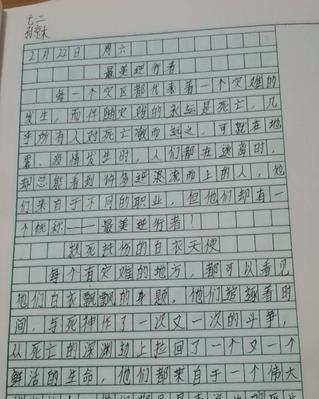 七二
2月22日 周六
最美逆行者
每一个灾区都代表着一个灾难的
发生,而伴随灾难的永远是死亡,几
乎所有人对死亡敬而远之,可就在地
震、疫情发生时,人们都在逃离时,
却总能看到许多逆流而上的人,他
们来自于不同的职业,但他们却有一
个统称——最美逆行者!
救死扶伤的白衣天使
每个有灾难的地方,都可以看见
他们白衣飘飘的身影。他们追赶着时
间,与死神作了一次又一次的斗争,
从死亡的深渊边上拉回了一个又一个
鲜活的生命,他们都来自于一个伟大